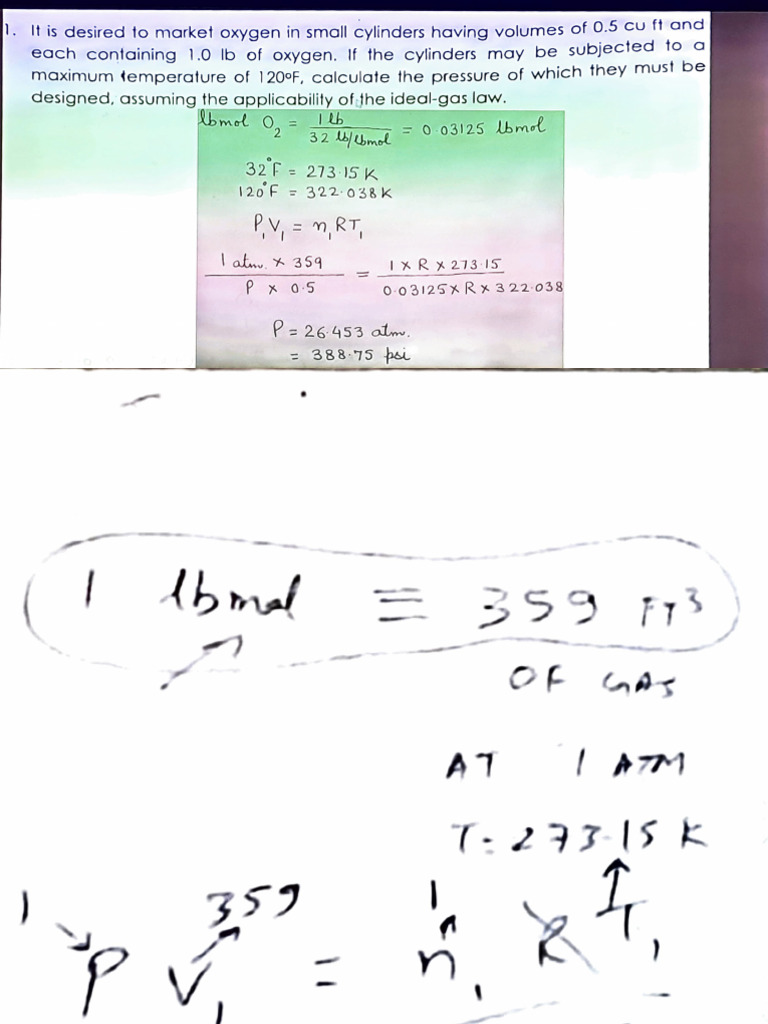 1. It is desired to market oxygen in small cylinders having volumes of 0.5 cu ft and
each containing 1.0 lb of oxygen. If the cylinders may be subjected to a
maximum temperature of 120ºF, calculate the pressure of which they must be
designed, assuming the applicability of the ideal-gas law.
lbmol O₂ = 1 lb / 32 lb/lbmol = 0.03125 lbmol
32°F = 273.15 K
120°F = 322.038 K
P₁V₁ = n₁RT₁
1 atm. × 359 / P × 0.5 = 1 × R × 273.15 / 0.03125 × R × 322.038
P = 26.453 atm.
= 388.75 psi
1 lbmol ≡ 359 FT³
OF GAS
AT 1 ATM
T = 273.15 K
1 359 1
P V₁ = n₁ R T₁